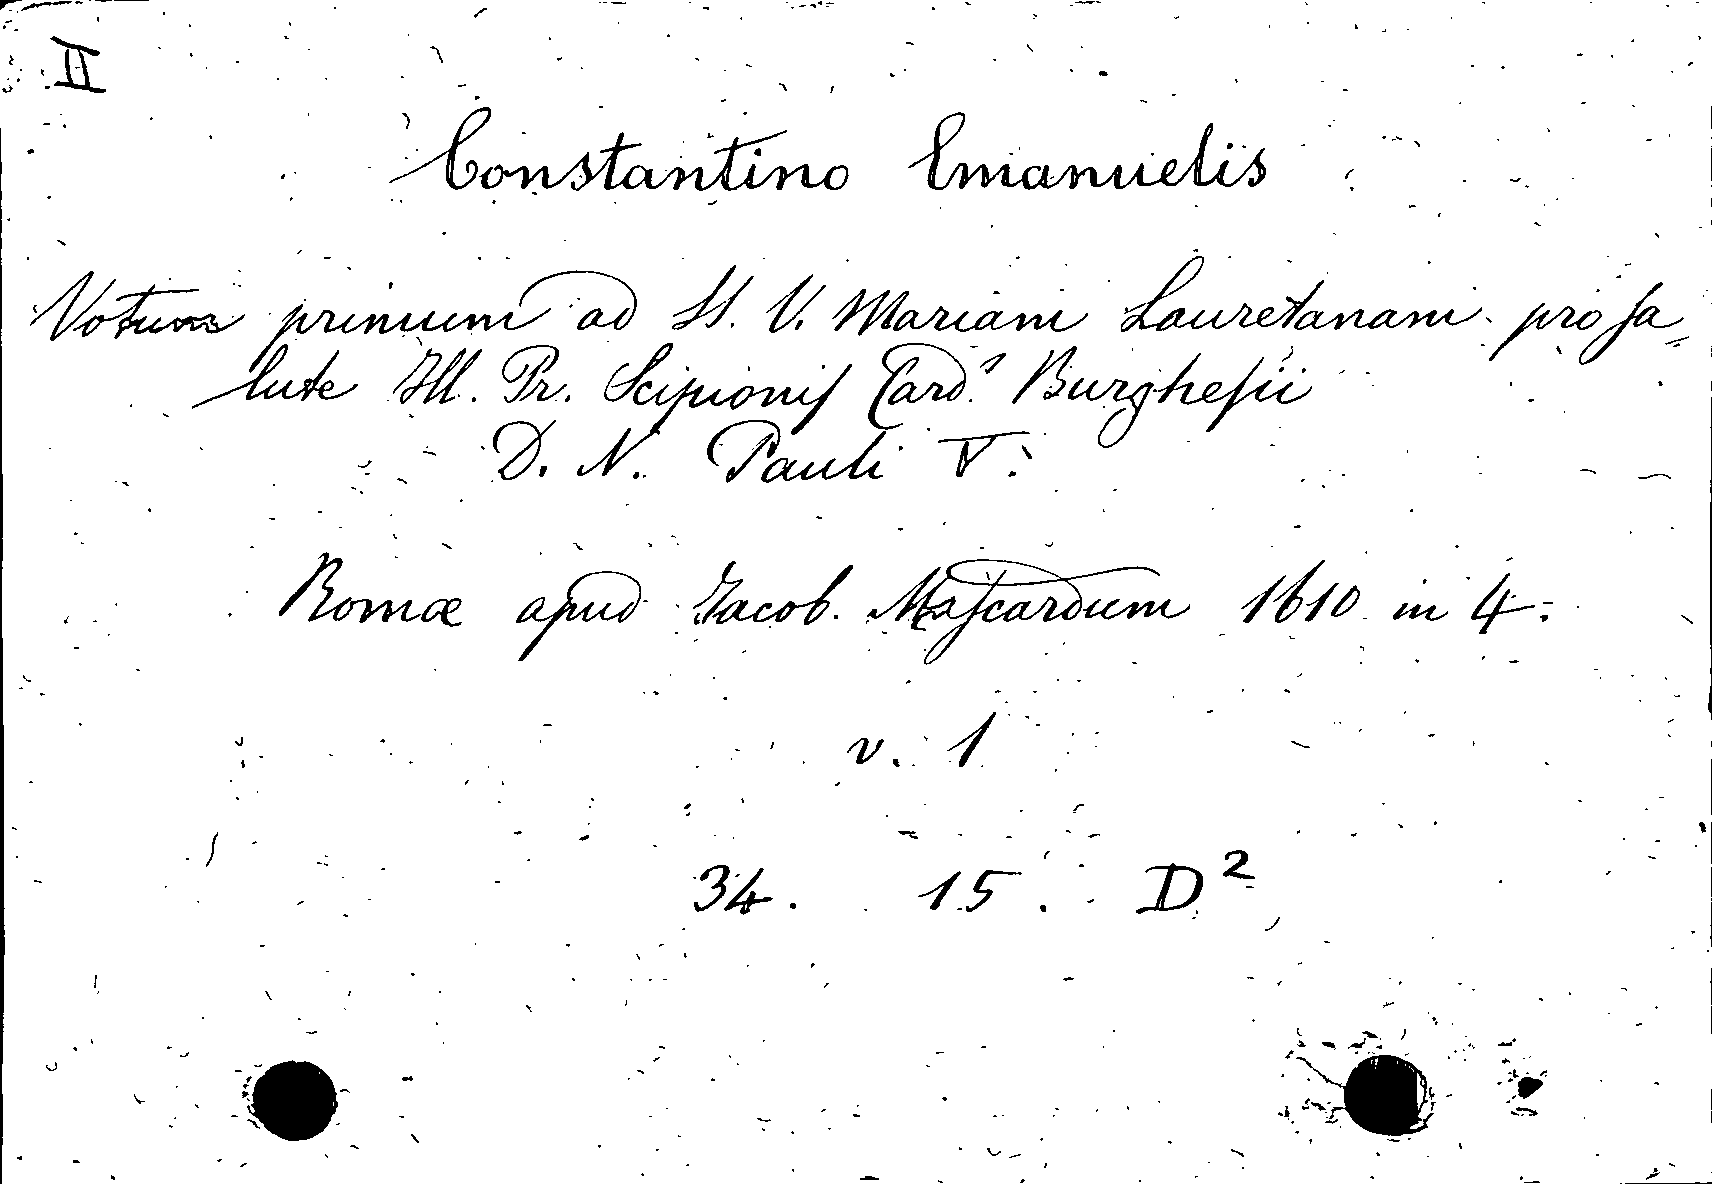 II
Constantino Emanuelis
Votum primum ad SS. V. Mariam Lauretanam pro sa„
lute Ill. Pr. Scipionis Card. Burghesii
D. N. Pauli V.
Romæ apud Jacob. Mascardum 1610 in 4.
v. 1
34. 15. D²